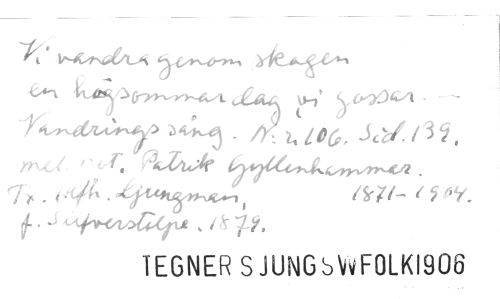 Vi vandra genom skogen
en högsommardag vi gossar. —
Vandringssång. N:r 106. Sid. 139.
mel. not. Patrik Gyllenhammar.
Tx. Alfh. Ljungman, 1871-1904.
f. Silfverstolpe. 1879.
TEGNER SJUNG SWFOLK1906